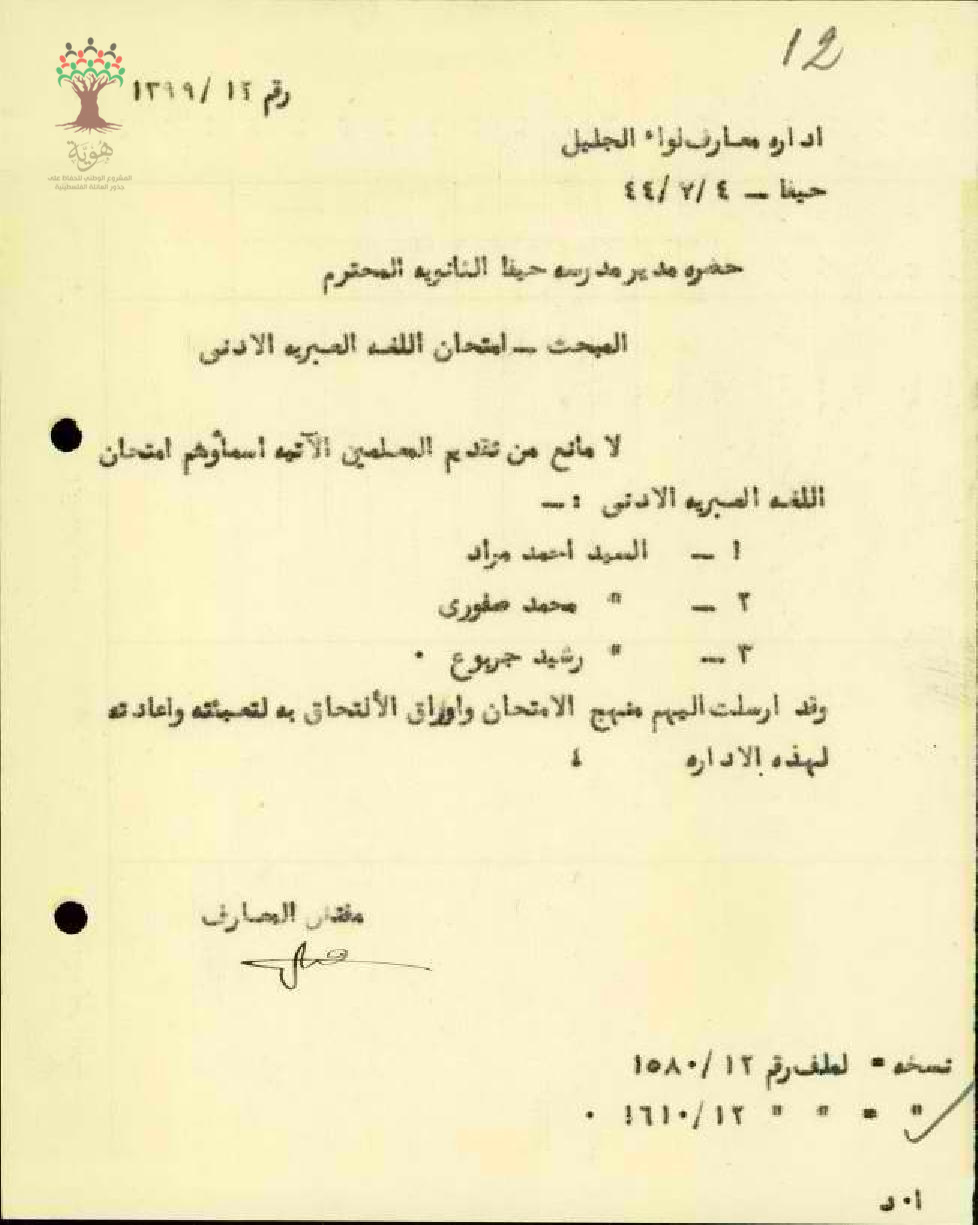 12
رقم ١٢/ ١٣٩٩
هُوِيَّة
المشروع الوطني للحفاظ على
جذور العائلة الفلسطينية
اداره معارف لواء الجليل
حيفا ــ ٤ /٧ /٤٤
حضره مدير مدرسه حيفا الثانويه المحترم
المبحث ــ امتحان اللغه العبريه الادنى
لا مانع من تقديم المعلمين الآتيه اسماؤهم امتحان
اللغه العبريه الادنى : ــ
١ ــ السيد احمد مراد
٢ ــ " محمد صفورى
٣ ــ " رشيد جربوع ٠
وقد ارسلت اليهم منهج الامتحان واوراق الألتحاق به لتعبئته واعادته
لهذه الاداره
مفتش المعارف
نسخه = لملف رقم ١٢/ ١٥٨٠
" = " " ١٢/ ١٦١٠ ٠
ا٠ د